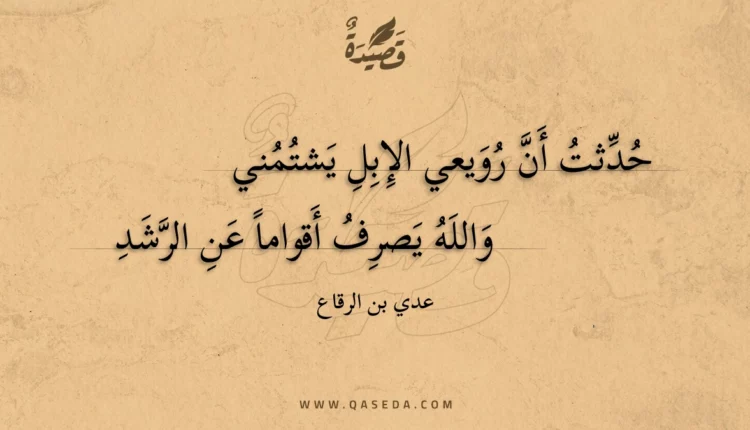 قَصِيْدَةٌ
حُدِّثتُ أَنَّ رُوَيعي الإِبِلِ يَشتُمُني
وَاللَهُ يَصرِفُ أَقواماً عَنِ الرَّشَدِ
عدي بن الرقاع
WWW.QASEDA.COM